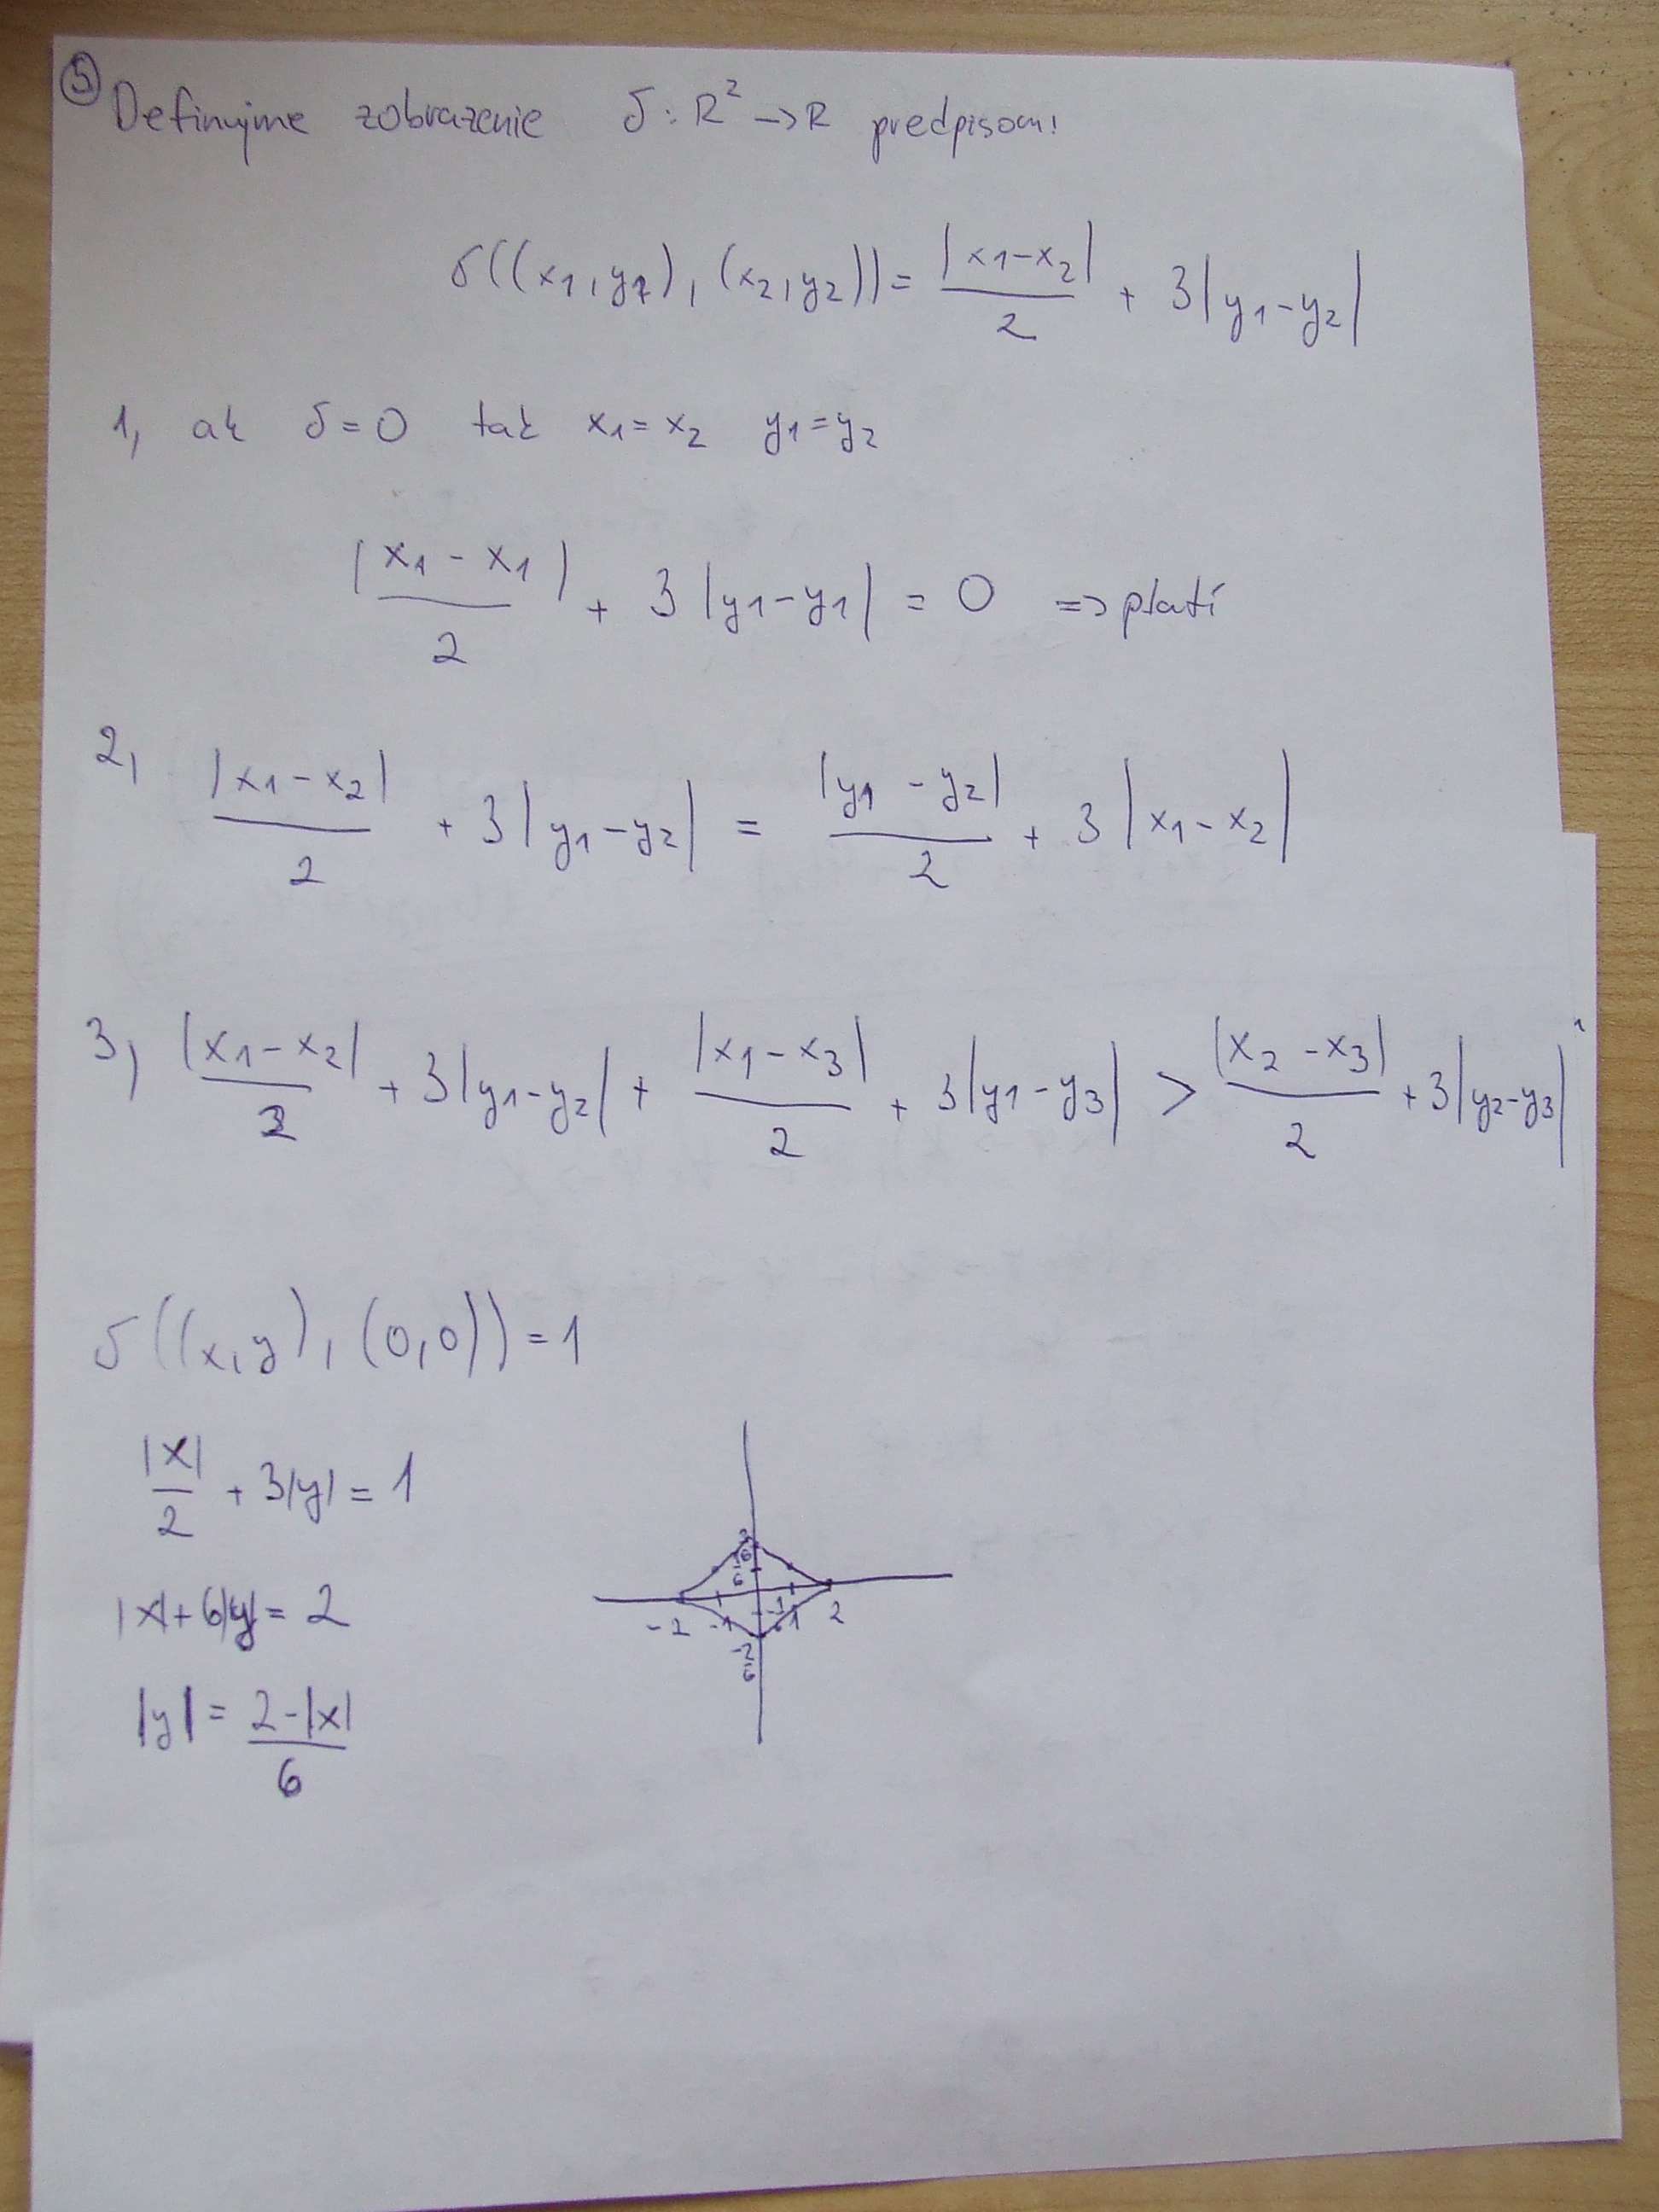 5
Definujme zobrazenie δ: R² → R predpisom:
δ((x1, y1), (x2, y2)) = |x1-x2|/2 + 3|y1-y2|
1, ak δ=0 tak x1=x2 y1=y2
|x1-x1|/2 + 3|y1-y1| = 0 => platí
2, |x1-x2|/2 + 3|y1-y2| = |y1-y2|/2 + 3|x1-x2|
3, |x1-x2|/2 + 3|y1-y2| + |x1-x3|/2 + 3|y1-y3| > |x2-x3|/2 + 3|y2-y3|
δ((x,y), (0,0)) = 1
|x|/2 + 3|y| = 1
|x|+6|y| = 2
|y| = 2-|x|/6
-2 -1 1 2
-2/6